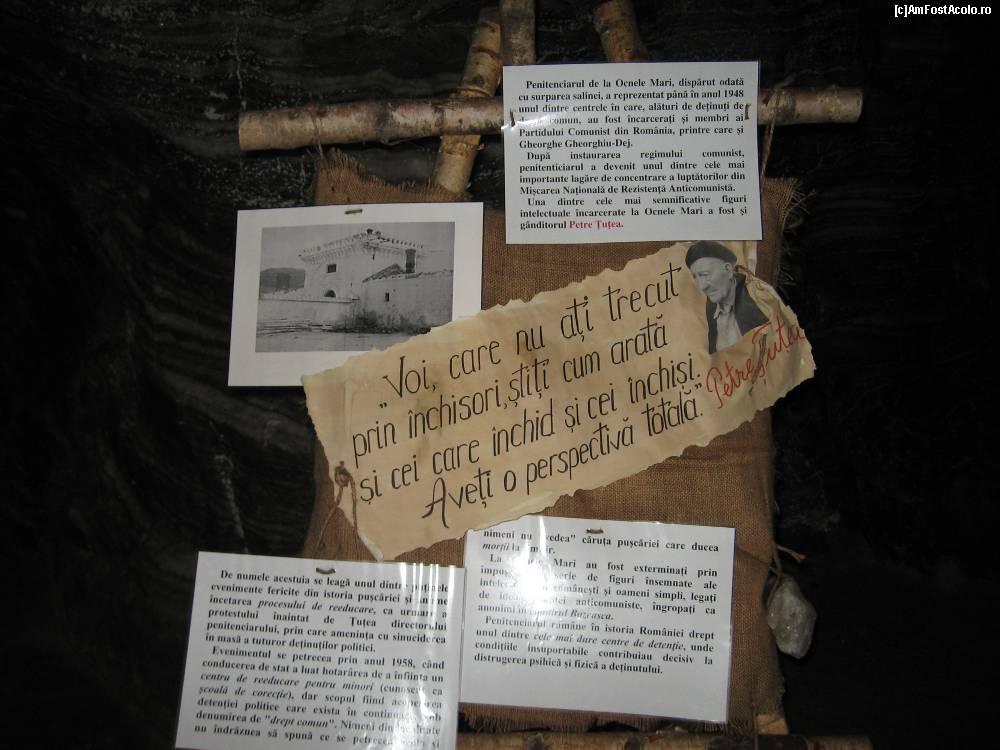 [c]AmFostAcolo.ro
Penitenciarul de la Ocnele Mari, dispărut odată
cu surparea salinei, a reprezentat până în anul 1948
unul dintre centrele în care, alături de deținuți de
comun, au fost încarcerați și membri ai
Partidului Comunist din România, printre care și
Gheorghe Gheorghiu-Dej.
După instaurarea regimului comunist,
penitenticiarul a devenit unul dintre cele mai
importante lagăre de concentrare a luptătorilor din
Mișcarea Națională de Rezistență Anticomunistă.
Una dintre cele mai semnificative figuri
intelectuale încarcerate la Ocnele Mari a fost și
gânditorul Petre Țuțea.
„Voi, care nu ați trecut
prin închisori, știți cum arată
și cei care închid și cei închiși.
Aveți o perspectivă totală.”
Petre Țuțea
De numele acestuia se leagă unul dintre puținele
evenimente fericite din istoria pușcăriei și anume
încetarea procesului de reeducare, ca urmare a
protestului înaintat de Țuțea directorului
penitenciarului, prin care amenința cu sinuciderea
în masă a tuturor deținuților politici.
Evenimentul se petrecea prin anul 1958, când
conducerea de stat a luat hotărârea de a înființa un
centru de reeducare pentru minori (cunoscut ca
școală de corecție), dar scopul fiind acoperirea
detenției politice care exista în continuare sub
denumirea de "drept comun". Nimeni din
nu îndrăznea să spună ce se petrecea și
nimeni nu "vedea" căruța pușcăriei care ducea
morții la
La Mari au fost exterminați prin
serie de figuri însemnate ale
românești și oameni simpli, legați
de anticomuniste, îngropați ca
anonimi în Bozeasca.
Penitenciarul rămâne în istoria României drept
unul dintre cele mai dure centre de detenție, unde
condițiile insuportabile contribuiau decisiv la
distrugerea psihică și fizică a deținutului.